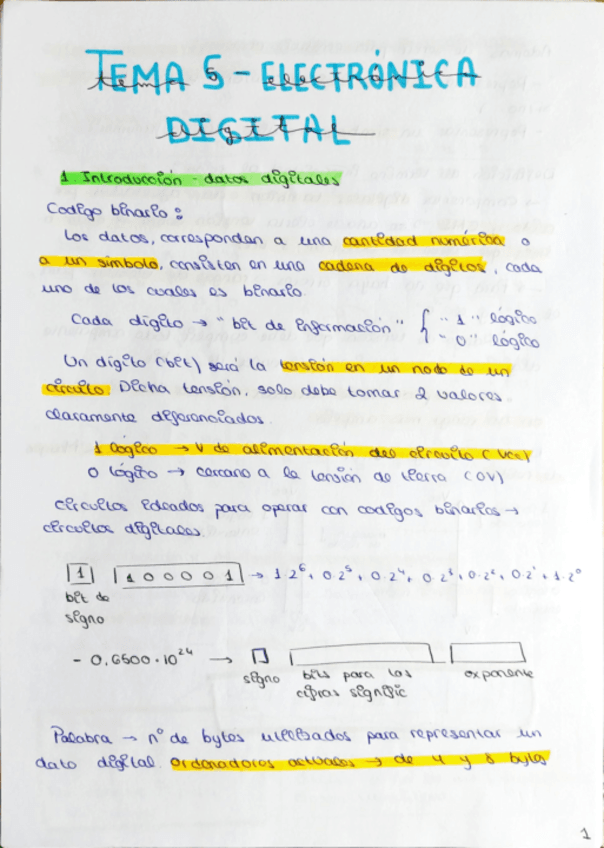 TEMA 5 - ELECTRÓNICA
DIGITAL
1. Introducción - datos digitales
Codigo binario:
Los datos, correspondan a una cantidad numérica o
a un simbolo, consisten en una cadena de digitos, cada
uno de los cuales es binario.
Cada dígito → "bit de información" { "1" lógico
"0" lógico
Un digito (bit) será la tensión en un nodo de un
circuito. Dicha tensión, solo debe tomar 2 valores
claramente diferenciados.
1 lógico → V de alimentación del circuito (Vcc)
0 lógico → cercano a la tensión de tierra (0V)
Circuitos ideados para operar con codigos binarios →
circuitos digitales
1 1 0 0 0 0 1 → 1·2⁶ + 0·2⁵ + 0·2⁴ + 0·2³ + 0·2² + 0·2¹ + 1·2⁰
bit de
signo
- 0,6500·10²⁴ →
signo bits para las exponente
cifras signific
Palabra → nº de bytes utilizados para representar un
dato digital. Ordenadores actuales → de 4 y 8 bytes
1